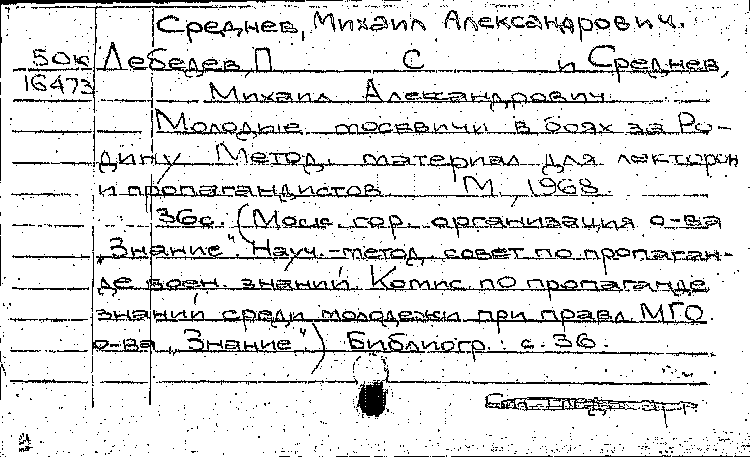 Среднев, Михаил Александрович.
50к Лебедев, П С и Среднев,
16473 Михаил Александрович
Молодые москвичи в боях за Ро-
дину. Метод. материал для лекторов
и пропагандистов М., 1968.
36с. (Моск. гор. организация о-ва
„Знание". Науч.-метод. совет по пропаган-
де воен. знаний. Комис. по пропаганде
знаний среди молодежи при правл. МГО
о-ва „Знание") Библиогр.: с. 36.